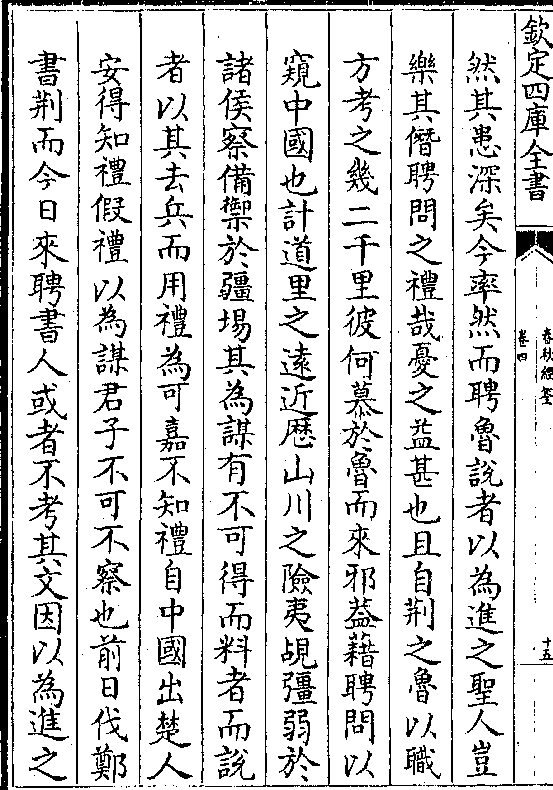 欽定四庫全書
春秋經筌
卷四
十五
然其患深矣今率然而聘魯說者以為進之聖人豈
樂其僭聘問之禮哉憂之益甚也且自荆之魯以職
方考之幾二千里彼何慕於魯而來邪益藉聘問以
窺中國也計道里之遠近歴山川之險夷覘彊弱於
諸侯察備禦於疆場其為謀有不可得而料者而說
者以其去兵而用禮為可嘉不知禮自中國出楚人
安得知禮假禮以為謀君子不可不察也前日伐鄭
書荆而今日來聘書人或者不考其文因以為進之